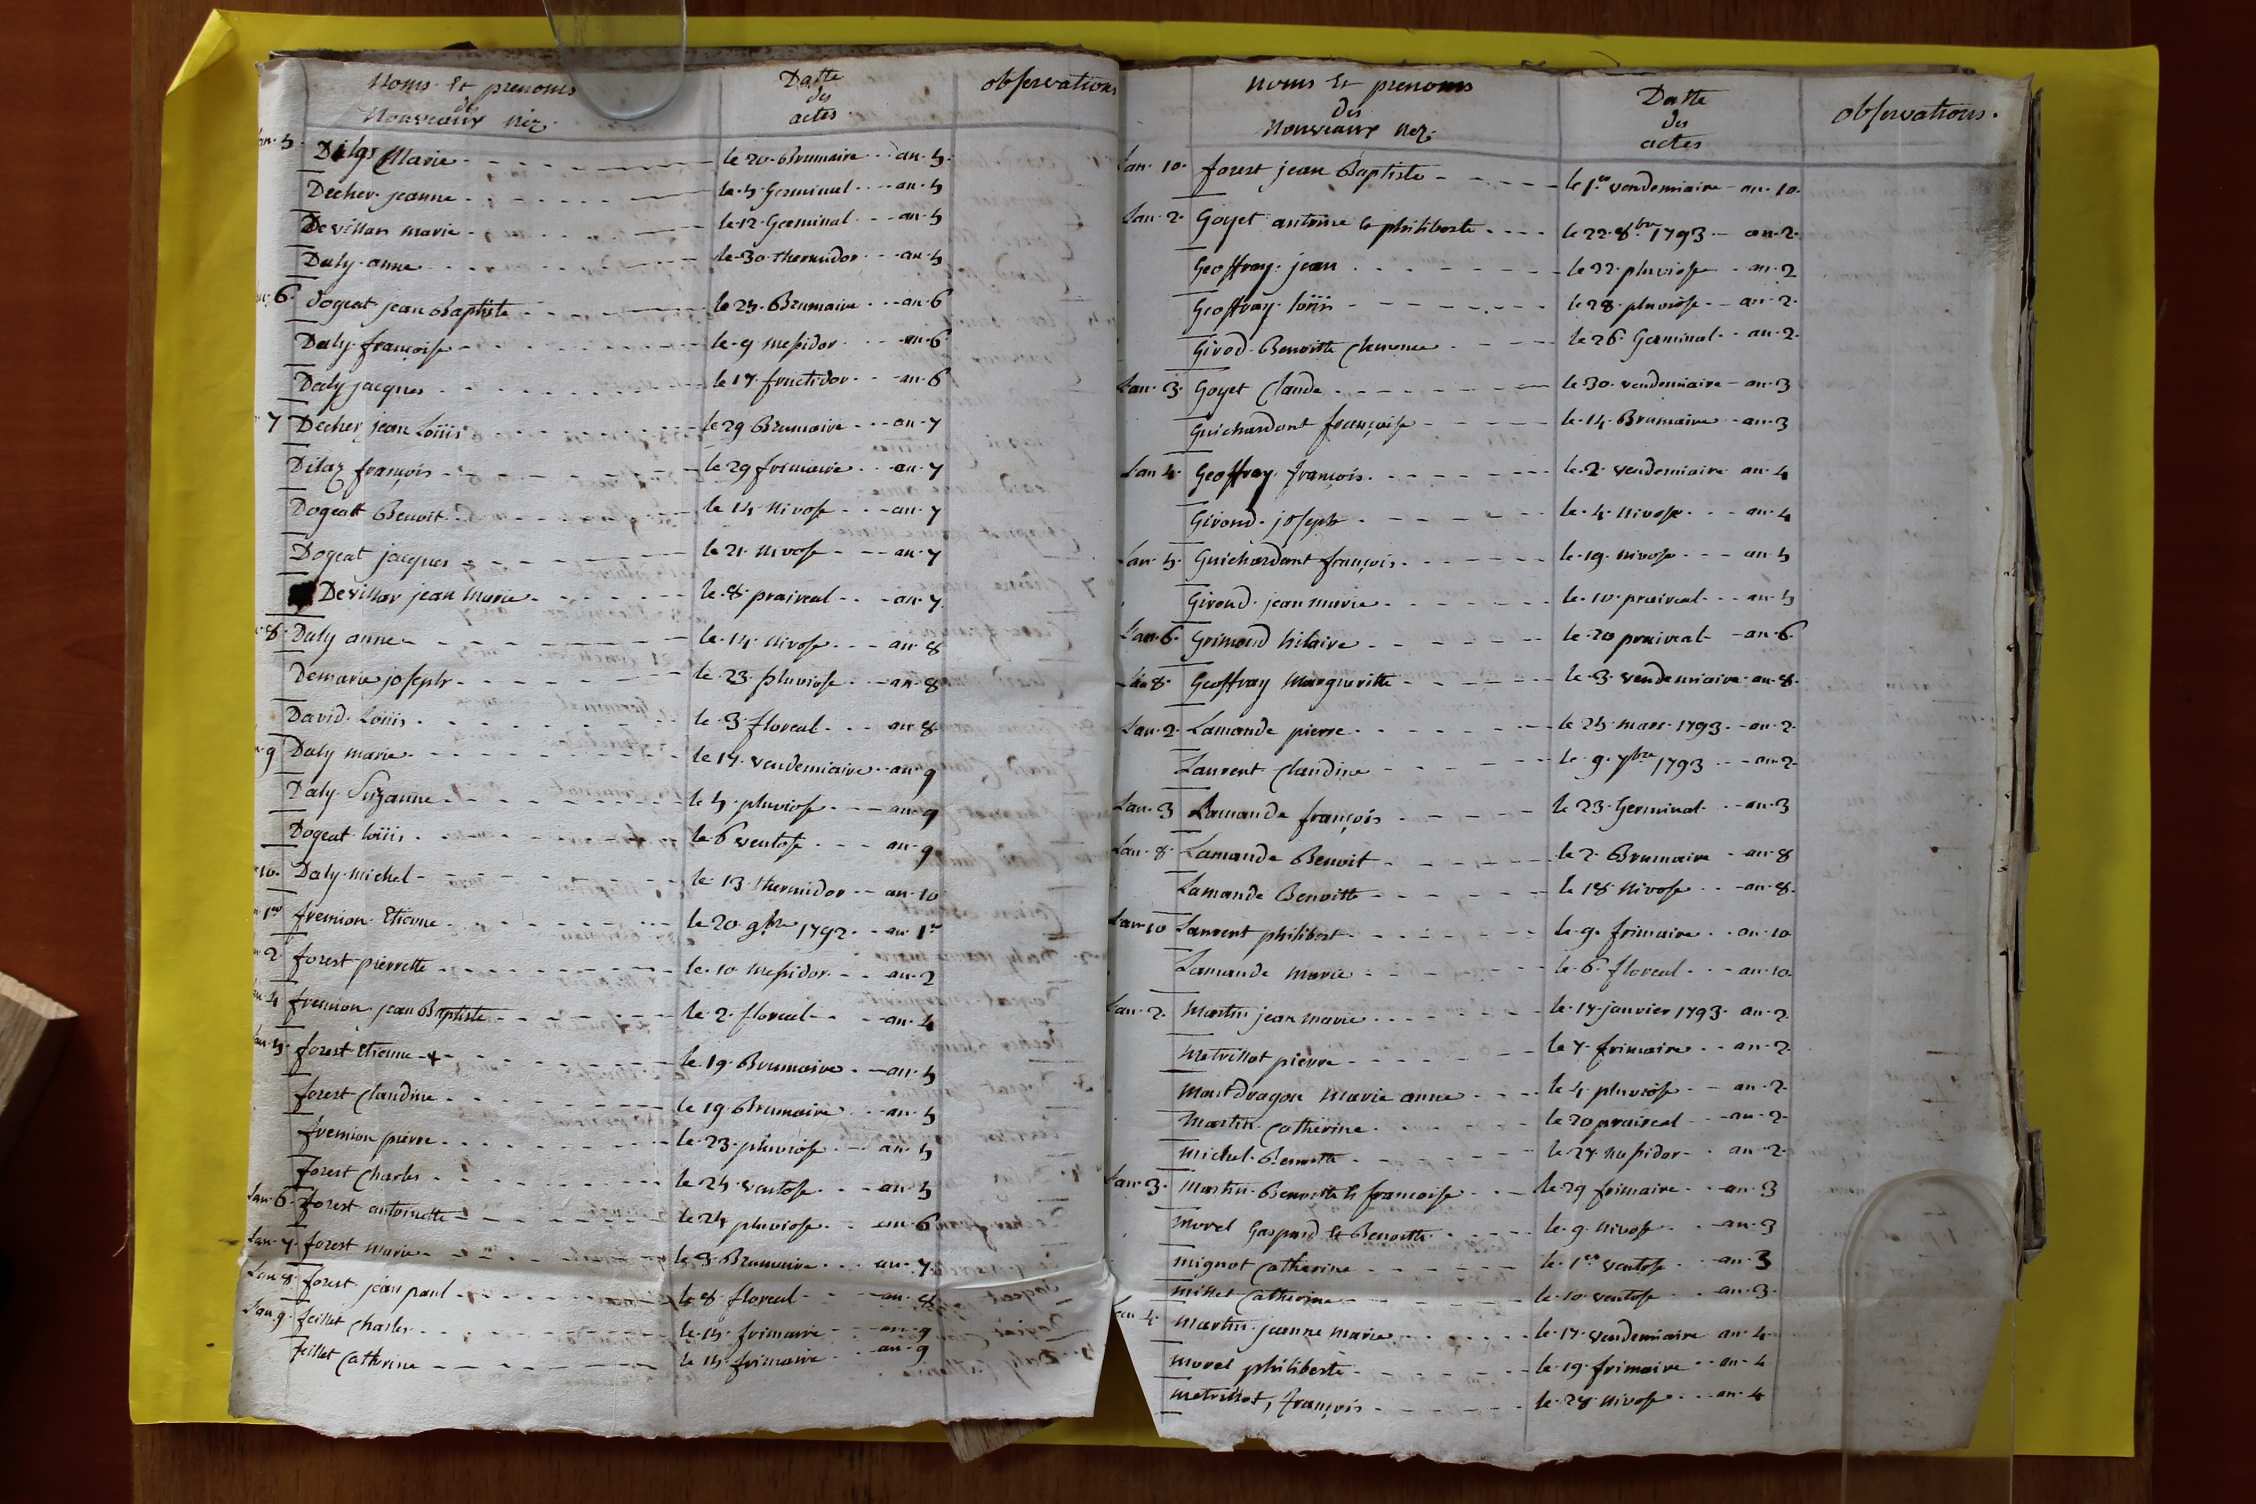 Noms Et prenoms
des
Nouveaux Nez.
Datte
des
actes
observations
an. 5. Dilas Marie le 20. Brumaire an. 5.
Decher. jeanne le. 5 Germinal an. 5
Devillars marie le. 12. Germinal an. 5
Daly. anne le. 30. thermidor an. 5
6. Dogeat jean Baptiste le 25. Brumaire an. 6
Daly. françoise le. 9 messidor an. 6
Daly jacques le 17. fructidor an. 6
7 Decher jean Loüis le 29 Brumaire an. 7
Dilaz françois le 29 frimaire an. 7
Dogeatt Benoit le 15 Nivose an. 7
Dogeat jacques le 21. Nivose an. 7
Devillar jean Marie le. 8. praireal an. 7.
8. Daly anne le. 14. Nivose an. 8
Demarie joseph le. 23. pluviose an. 8
David. Loüis le. 3. floreal an. 8.
9 Daly marie le 17. vendemiaire an. 9
Daly. Suzanne le 5. pluviose an. 9
Dogeat. loüis le 6 ventose an. 9
10. Daly. michel le. 13. thermidor an. 10
1er fremion. Etienne le 20. 9bre 1792. an. 1er
2. forest pierrette le. 10. messidor an. 2
4 fremion. jean Baptiste le. 2. floreal an. 4
an. 5. forest Etienne + le. 19. Brumaire an. 5
forest Claudine le 19. Brumaire an. 5
fremion pierre le. 23. pluviose an. 5
forest Charles le 25. ventose an. 5
Lan. 6. forest antoinette le 24 pluviose an. 6
Lan. 7. forest marie le 3. Brumaire an. 7.
Lan 8. forest jean paul le 8. floreal an. 8
Lan. 9. feillet Charles le. 15. frimaire an. 9
feillet Catherine le 15. frimaire an. 9
Noms Et prenoms
des
Nouveaux Nez.
Datte
des
actes
observations.
Lan. 10. forest jean Baptiste le 1er vendemiaire an. 10.
Lan. 2. Goyet antoine & philiberte le 22. 8bre 1793 an. 2.
Geoffray. jean le 22. pluviose an. 2
Geoffray. loüis le 28. pluviose an. 2.
Girod. Benoitte Clemence le 26. Germinal an. 2.
Lan. 3. Goyet Claude le 30. vendemiaire an. 3
Guichardont françoise le. 14. Brumaire an. 3
Lan 4. Geoffray. françois le. 2. vendemiaire an. 4
Giroud. joseph le. 4. Nivose an. 4
Lan. 5. Guichardont françois le. 19. Nivose an. 5
Giroud. jean marie le. 10. praireal an. 5
Lan. 6. Grimoud hilaire le. 20 praireal an. 6.
Lan 8. Geoffray Margueritte le. 3. vendemiaire an. 8.
Lan. 2. Lamande pierre le 25. mars. 1793. an. 2.
Laurent Claudine le. 9. 7bre 1793 an. 2.
Lan. 3 Lamande françois le 23. Germinal an. 3
Lan. 8. Lamande Benoit le 2. Brumaire an. 8
Lamande Benoitte le 18. Nivose an. 8.
Lan. 10 Laurent philibert le. 9. frimaire an. 10
Lamande marie le. 6. floreal an. 10.
Lan. 2. Martin jean marie le. 17. janvier 1793. an. 2.
Metrillot pierre le 7. frimaire an. 2.
Montdragon Marie anne le 4. pluviose an. 2.
Martin. Catherine le 20 praireal an. 2.
Michel. Benoitte le 27. messidor an. 2.
Lan. 3. Martin. Benoitte & francoise le 29 frimaire an. 3
Morel Gaspard Et Benoitte le. 9. Nivose an. 3
Mignot Catherine le. 1er ventose an. 3
Millet Catherine le. 10. ventose an. 3.
Lan. 4. Martin. jeanne marie le. 17. vendemiaire an. 4.
Morel philiberte le. 19. frimaire an. 4
Metrillot, françois le. 28. Nivose an. 4